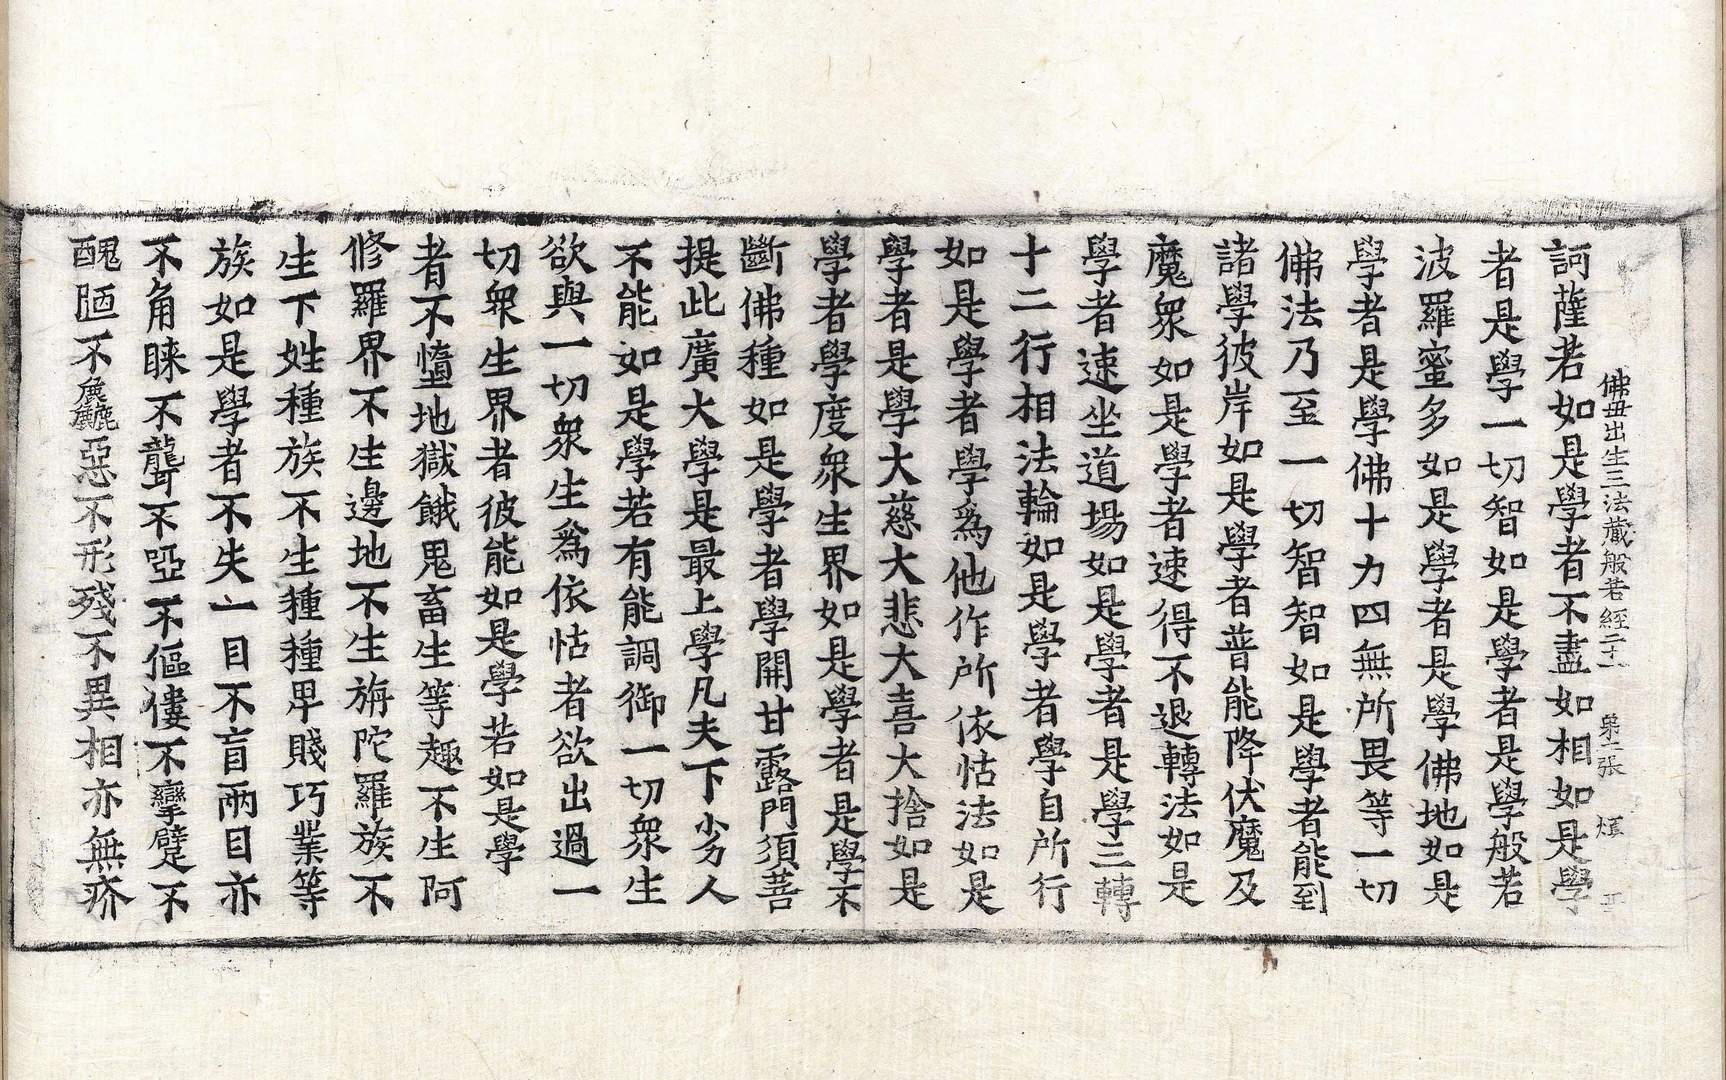 佛母出生三法藏般若經二十 第二張
訶薩若如是學者不盡如相如是學
者是學一切智如是學者是學般若
波羅蜜多如是學者是學佛地如是
學者是學佛十力四無所畏等一切
佛法乃至一切智智如是學者能到
諸學彼岸如是學者普能降伏魔及
魔眾如是學者速得不退轉法如是
學者速坐道場如是學者是學三轉
十二行相法輪如是學者學自所行
如是學者學為他作所依怙法如是
學者是學大慈大悲大喜大捨如是
學者學度眾生界如是學者是學不
斷佛種如是學者學開甘露門須菩
提此廣大學是最上學凡夫下劣人
不能如是學若有能調御一切眾生
欲與一切眾生為依怙者欲出過一
切眾生界者彼能如是學若如是學
者不墮地獄餓鬼畜生等趣不生阿
修羅界不生邊地不生旃陀羅族不
生下姓種族不生種種卑賤巧業等
族如是學者不失一目不盲兩目亦
不角睞不聾不啞不傴僂不攣躄不
醜陋不麤惡不形殘不異相亦無疥